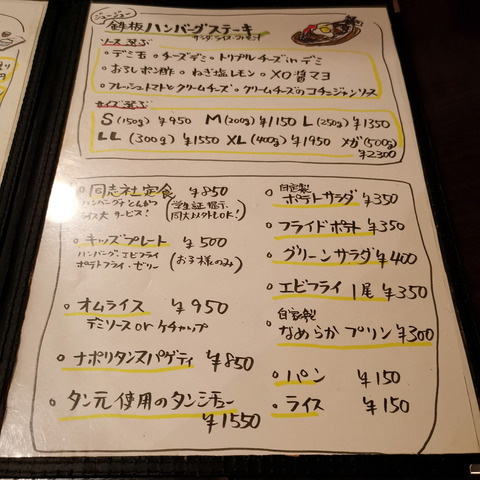 ジュージュー
鉄板ハンバーグステーキ
サラダ・ライス・フライ付
ソース選ぶ
・デミ玉 ・チーズデミ ・トリプルチーズinデミ
・おろしポン酢 ・ねぎ塩レモン ・XO醤マヨ
・フレッシュトマトとクリームチーズ ・クリームチーズのコチュジャンソース
サイズ選ぶ
S(150g)¥950 M(200g)¥1150 L(250g)¥1350
LL(300g)¥1550 XL(400g)¥1950 メガ(500g)
¥2300
同志社定食 ¥850
ハンバーグ+とんかつ
ライス大サービス!
(学生証提示
同大以外もOK!)
キッズプレート ¥500
ハンバーグ・エビフライ
ポテトフライ・ゼリー
(お子様のみ)
オムライス ¥950
デミソース or ケチャップ
ナポリタンスパゲティ ¥850
タン元使用のタンシチュー
¥1550
自家製
ポテトサラダ ¥350
フライドポテト ¥350
グリーンサラダ ¥400
エビフライ 1尾 ¥350
自家製
なめらかプリン ¥300
パン ¥150
ライス ¥150